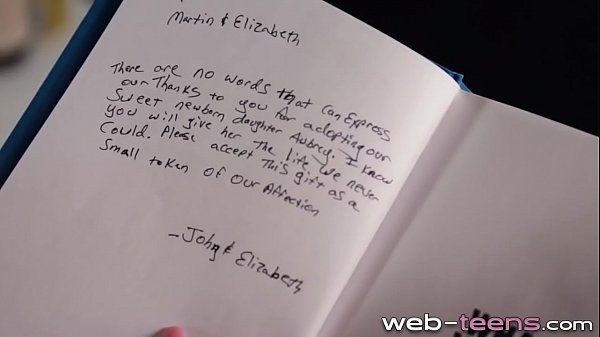 Martin & Elizabeth
There are no words that can express
our thanks to you for adopting our
Sweet newborn daughter Aubrey. I know
you will give her the life we never
Could. Please accept this gift as a
small token of our Affection
- John & Elizabeth
web-teens.com